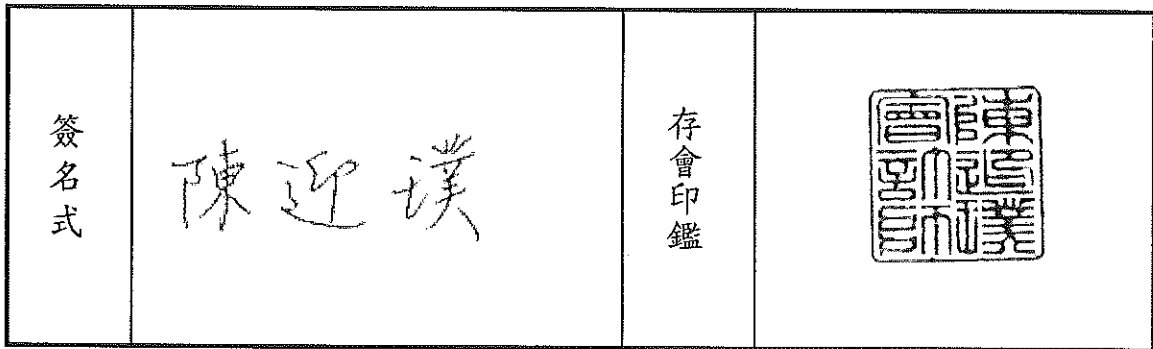 簽名式
陳迎璞
存會印鑑
陳迎璞
會計師